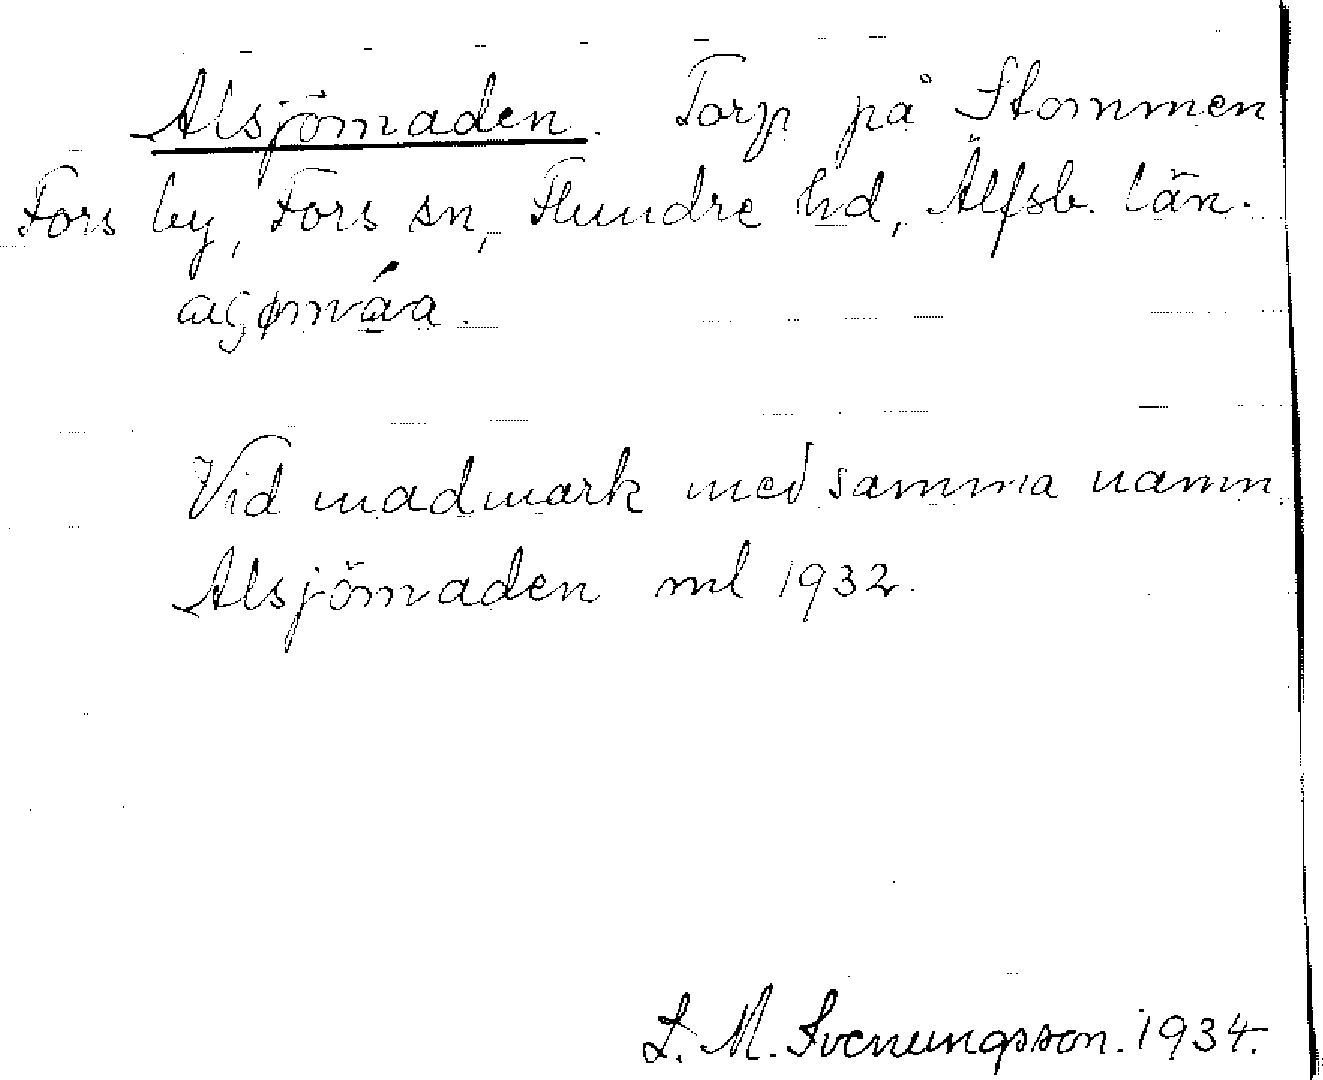 Alsjömaden. Torp på Stommen
Fors by, Fors sn, Flundre hd, Älfsb. län.
Vid madmark med samma namn.
Alsjömaden ml 1932.
L. M. Svenungsson. 1934.